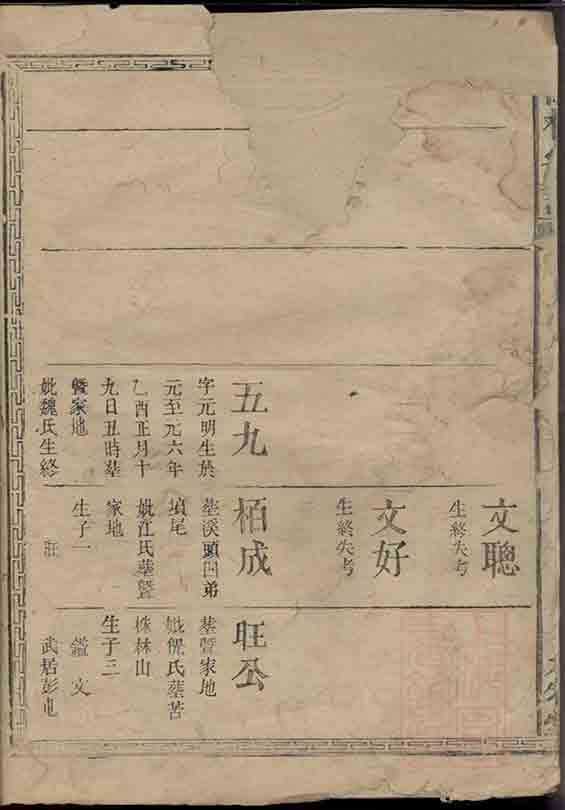 五九
字元明生於
元至元六年
乙酉正月十
九日丑時墓
暨家地
妣魏氏生終
文聰
生終失考
文好
生終失考
栢成
墓溪頭四弟
墳尾
妣江氏墓暨
家地
生子一
旺
旺公
墓暨家地
妣倪氏墓苦
株林山
生子三
鑑 文
武居彭屯